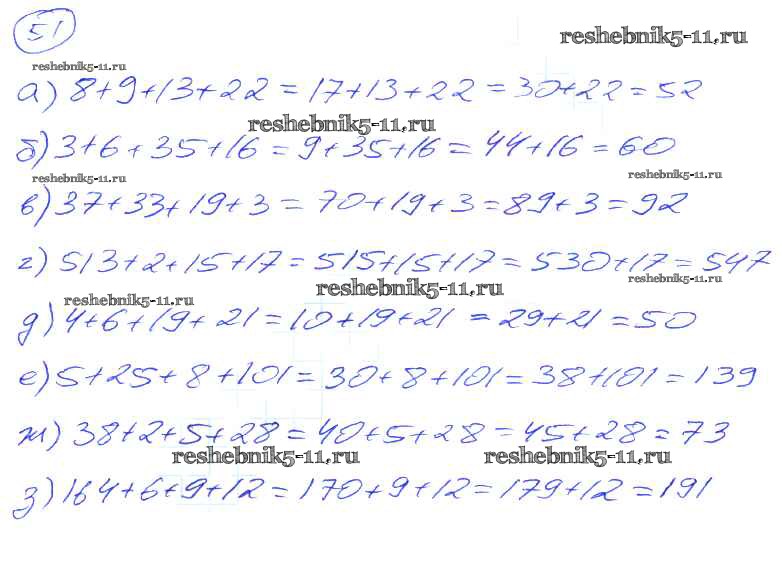 51
reshebnik5-11.ru
reshebnik5-11.ru
а) 8+9+13+22=17+13+22=30+22=52
reshebnik5-11.ru
б) 3+6+35+16=9+35+16=44+16=60
reshebnik5-11.ru
reshebnik5-11.ru
в) 37+33+19+3=70+19+3=89+3=92
г) 513+2+15+17=515+15+17=530+17=547
reshebnik5-11.ru
reshebnik5-11.ru
reshebnik5-11.ru
д) 4+6+19+21=10+19+21=29+21=50
е) 5+25+8+101=30+8+101=38+101=139
ж) 38+2+5+28=40+5+28=45+28=73
reshebnik5-11.ru
reshebnik5-11.ru
з) 164+6+9+12=170+9+12=179+12=191